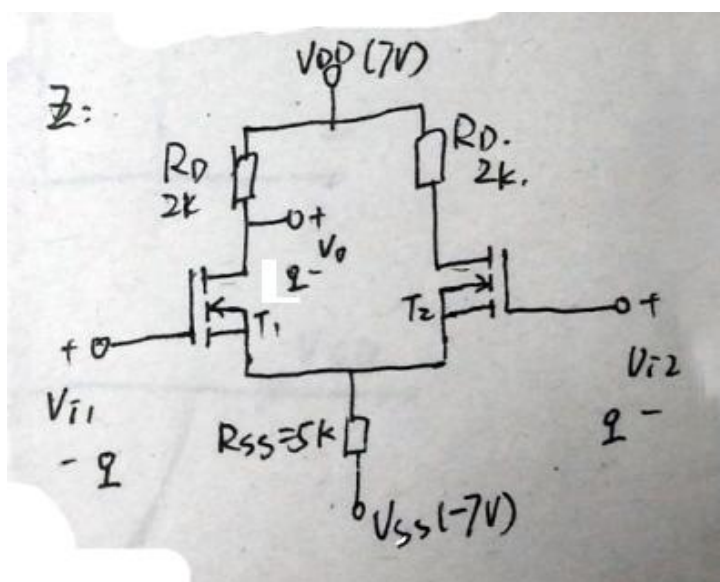 VDD (7V)
2:
RD
2K
RD.
2K.
+
Vo
-
T1
T2
+
Vi1
-
+
Vi2
-
RSS=5K
VSS(-7V)